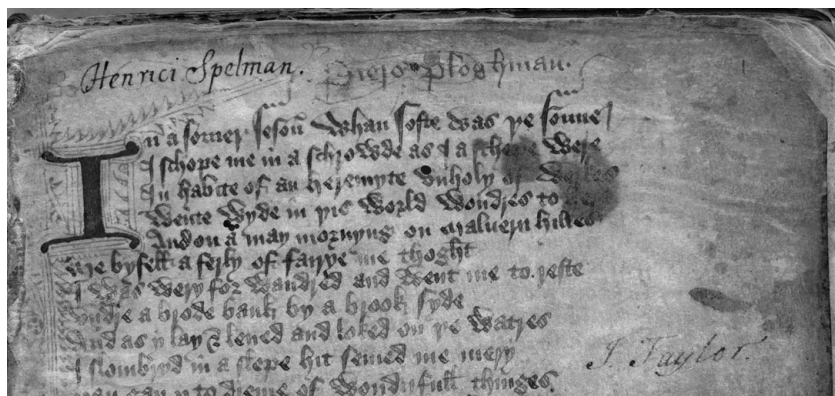 Henrici Spelman. Piers Ploghman.
In a somer seson whan softe was þe sonne
I schope me in a schrowde as I a schepe were
In habite of an heremyte vnholy of werkes
Wente wyde in þis world wondres to
And on a may mornyng on maluern hilles
me byfell a ferly of fairye me thoght
I was wery for wandred and went me to reste
vndre a brode bank by a brook syde
And as y lay & lened and loked on þe watres
I slombryd in a slepe hit semed me mery
þan gan y to dreme of wondrfull thinges.
J. Taylor.